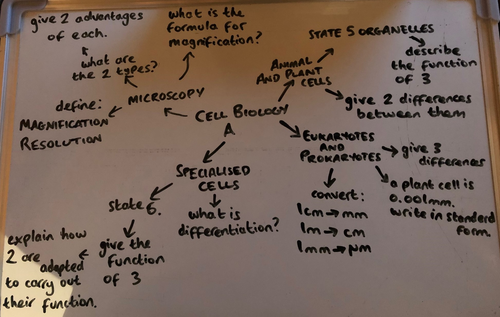 give 2 advantages
of each.
what is the
formula for
magnification?
STATE 5 ORGANELLES
describe
the function
of 3
what are
the 2 types?
ANIMAL
AND PLANT
CELLS
define:
MAGNIFICATION
RESOLUTION
MICROSCOPY
give 2 differences
between them
CELL BIOLOGY
A
EUKARYOTES
AND
PROKARYOTES
give 3
differences
SPECIALISED
CELLS
convert:
1cm → mm
1m → cm
1mm → µm
a plant cell is
0.001mm.
write in standard
form.
state 6.
what is
differentiation?
give the
function
of 3
explain how
2 are adapted
to carry out
their function.